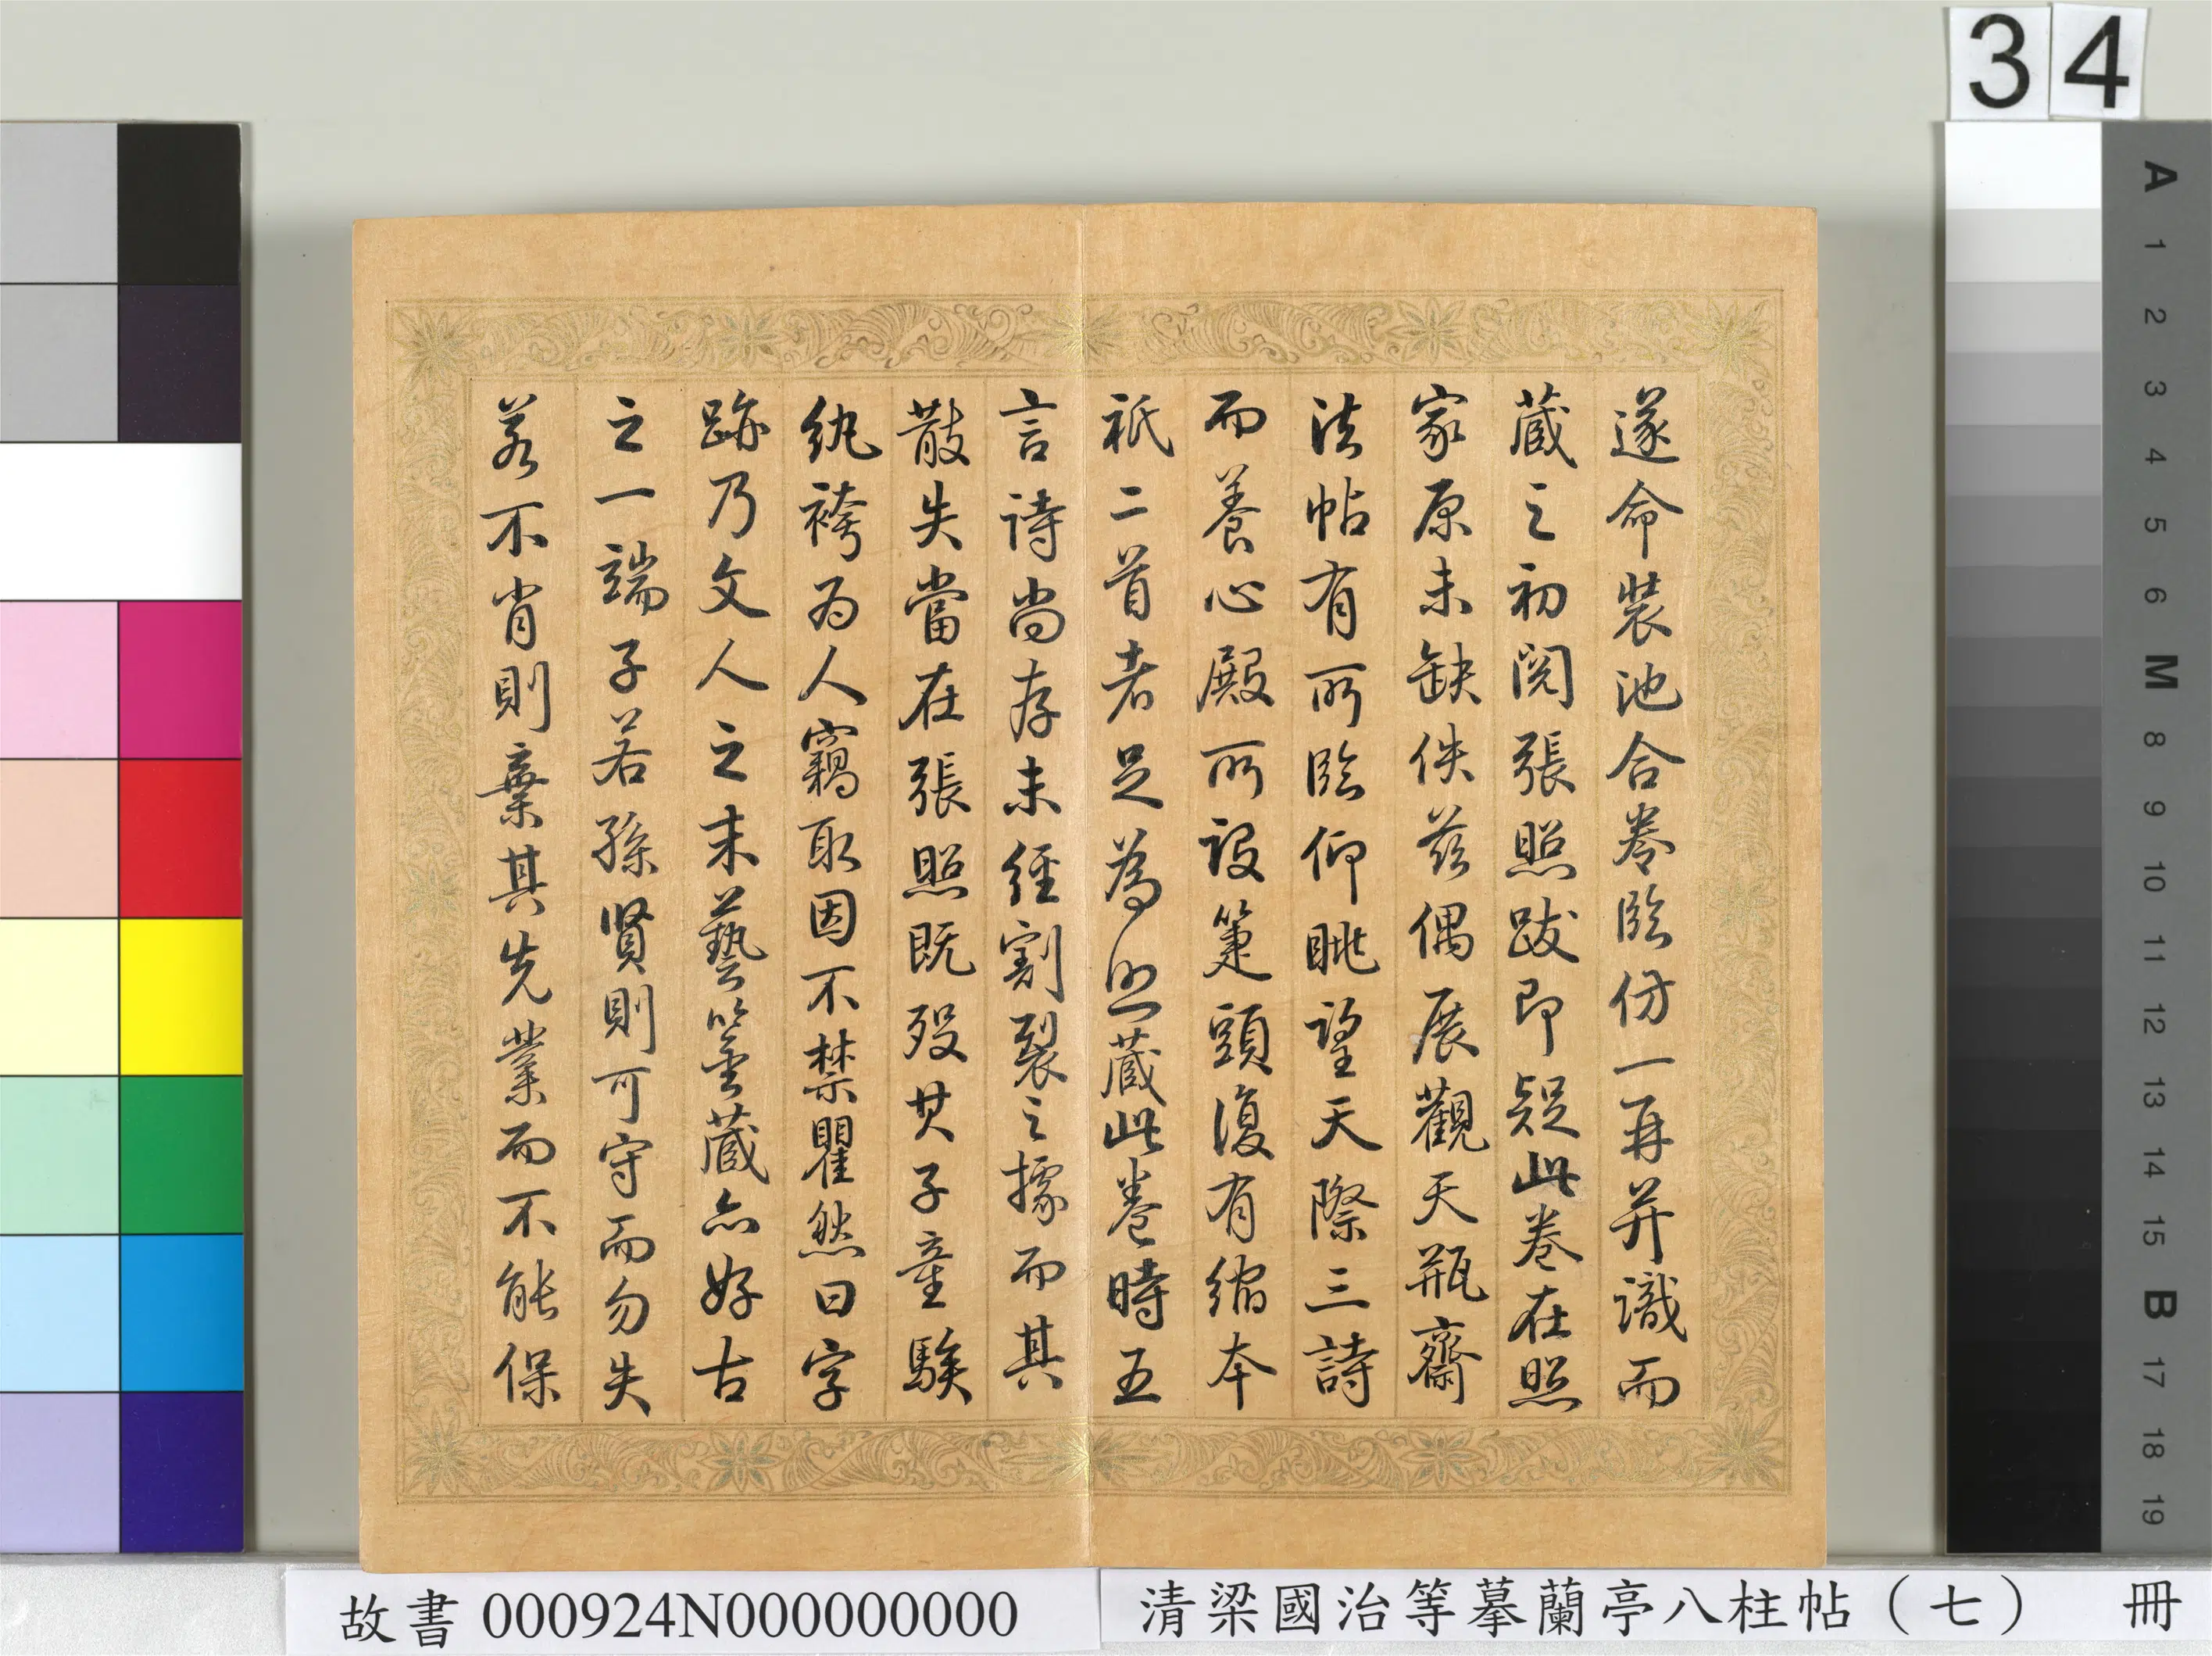 遂命裝池合卷臨仿一再并識而
藏之初閱張照跋即疑此卷在照
家原未缺佚茲偶展觀天瓶齋
法帖有所臨仰眺望天際三詩
而養心殿所設箑頭復有縮本
祇二首者足為照藏此卷時五
言詩尚存未經割裂之據而其
散失當在張照既歿其子童騃
紈袴為人竊取因不禁瞿然曰字
跡乃文人之末藝鑒藏亦好古
之一端子若孫賢則可守而勿失
若不肖則棄其先業而不能保
34
A
1
2
3
4
5
6
M
8
9
10
11
12
13
14
15
B
17
18
19
故書 000924N000000000
清梁國治等摹蘭亭八柱帖（七） 冊